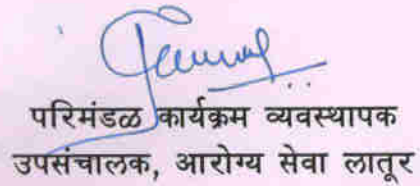 परिमंडळ कार्यक्रम व्यवस्थापक
उपसंचालक, आरोग्य सेवा लातूर